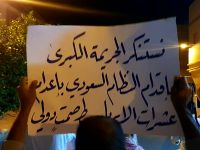 نستنكر الجريمة الكبرى
بإقدام النظام السعودي بإعدام
عشرات الأبرياء وصمت دولي